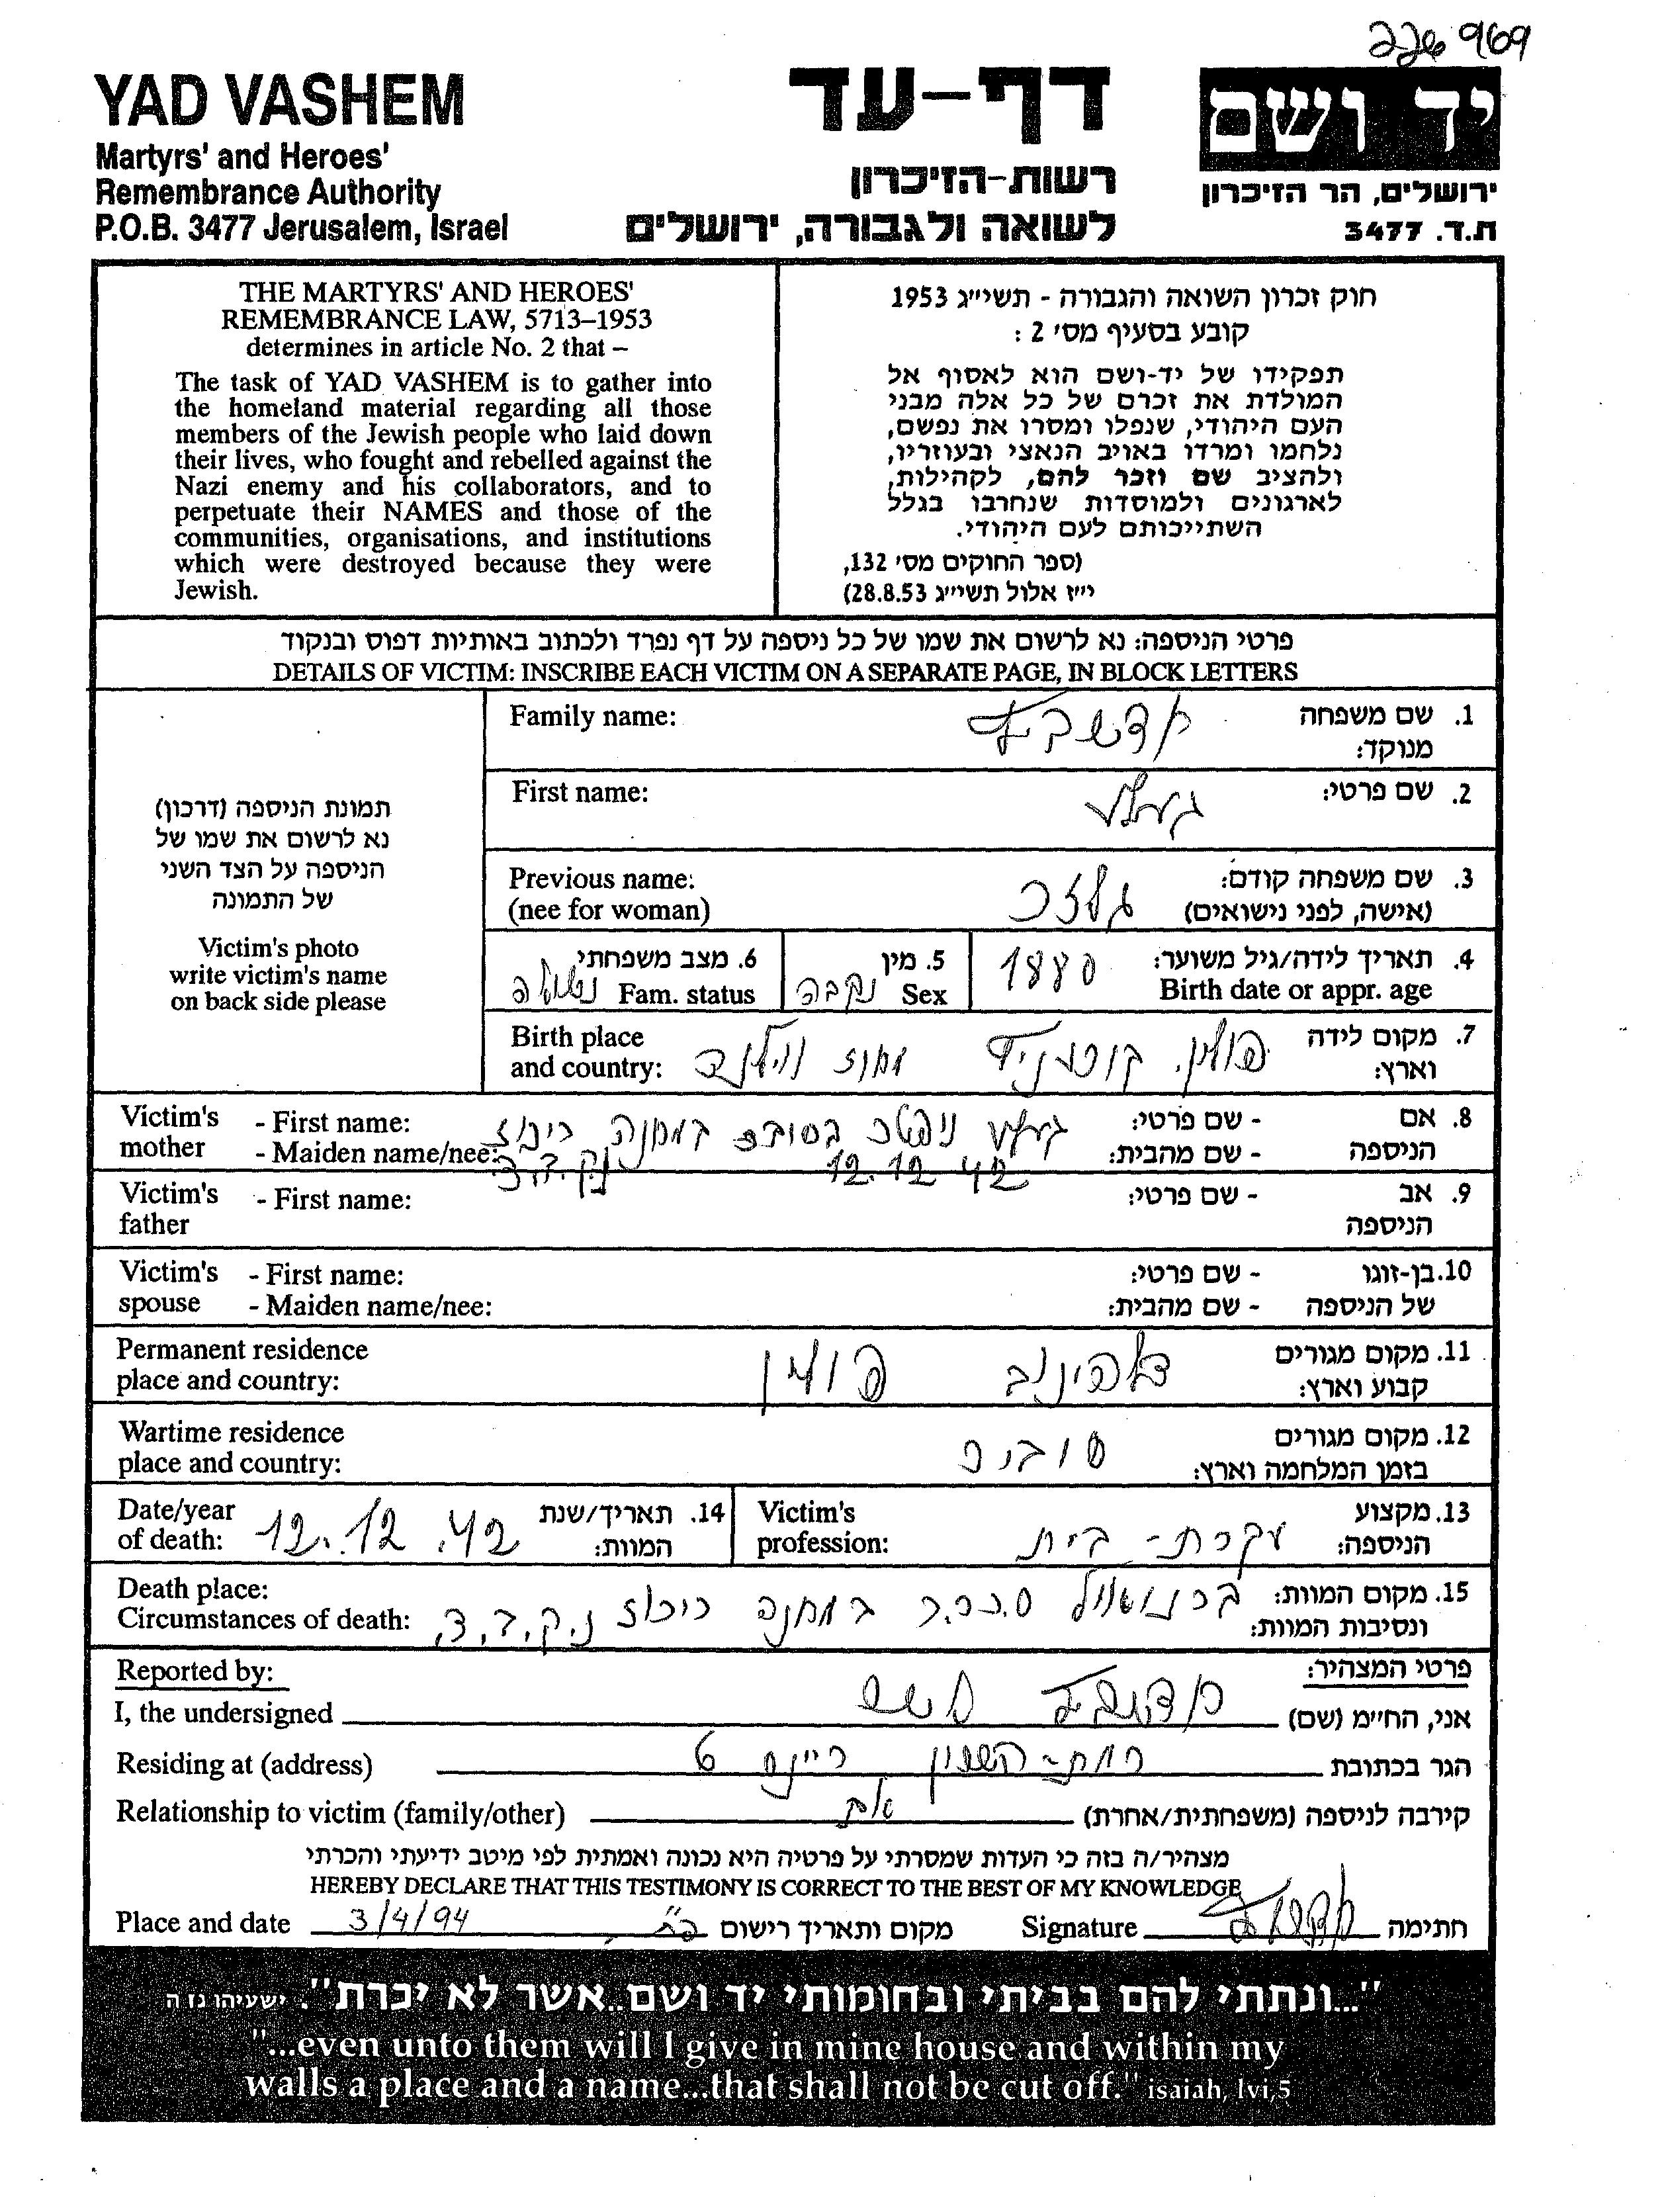 226969
YAD VASHEM
Martyrs' and Heroes'
Remembrance Authority
P.O.B. 3477 Jerusalem, Israel
דף-עד
רשות-הזיכרון
לשואה ולגבורה, ירושלים
יד ושם
ירושלים, הר הזיכרון
ת.ד. 3477
THE MARTYRS' AND HEROES'
REMEMBRANCE LAW, 5713–1953
determines in article No. 2 that –
The task of YAD VASHEM is to gather into
the homeland material regarding all those
members of the Jewish people who laid down
their lives, who fought and rebelled against the
Nazi enemy and his collaborators, and to
perpetuate their NAMES and those of the
communities, organisations, and institutions
which were destroyed because they were
Jewish.
חוק זכרון השואה והגבורה - תשי״ג 1953
קובע בסעיף מס׳ 2 :
תפקידו של יד-ושם הוא לאסוף אל
המולדת את זכרם של כל אלה מבני
העם היהודי, שנפלו ומסרו את נפשם,
נלחמו ומרדו באויב הנאצי ובעוזריו,
ולהציב שם וזכר להם, לקהילות,
לארגונים ולמוסדות שנחרבו בגלל
השתייכותם לעם היהודי.
(ספר החוקים מס׳ 132,
י״ז אלול תשי״ג 28.8.53)
פרטי הניספה: נא לרשום את שמו של כל ניספה על דף נפרד ולכתוב באותיות דפוס ובנקוד
DETAILS OF VICTIM: INSCRIBE EACH VICTIM ON A SEPARATE PAGE, IN BLOCK LETTERS
תמונת הניספה (דרכון)
נא לרשום את שמו של
הניספה על הצד השני
של התמונה
Victim's photo
write victim's name
on back side please
Family name:
1. שם משפחה
מנוקד:
First name:
2. שם פרטי:
Previous name:
(nee for woman)
3. שם משפחה קודם:
(אישה, לפני נישואים)
4. תאריך לידה/גיל משוער: 1880
Birth date or appr. age
5. מין
Sex נקבה
6. מצב משפחתי
Fam. status נשואה
Birth place
and country:
7. מקום לידה
וארץ:
פולין. מחוז
Victim's mother - First name:
- Maiden name/nee:
8. אם הניספה - שם פרטי:
- שם מהבית:
במחנה ריכוז
12.12 42 נ.ק.ו.ד.
Victim's father - First name:
9. אב הניספה - שם פרטי:
Victim's spouse - First name:
- Maiden name/nee:
10. בן-זוגו של הניספה - שם פרטי:
- שם מהבית:
Permanent residence
place and country:
11. מקום מגורים
קבוע וארץ: פולין
Wartime residence
place and country:
12. מקום מגורים
בזמן המלחמה וארץ:
Date/year
of death:
14. תאריך/שנת
המוות: 12.12.42
Victim's
profession:
13. מקצוע
הניספה: עקרת-בית
Death place:
Circumstances of death:
15. מקום המוות:
ונסיבות המוות:
במחנה ריכוז
Reported by:
פרטי המצהיר:
I, the undersigned
אני, החי״מ (שם) משה
Residing at (address)
הגר בכתובת רמת-השרון 6
Relationship to victim (family/other)
קירבה לניספה (משפחתית/אחרת)
מצהיר/ה בזה כי העדות שמסרתי על פרטיה היא נכונה ואמתית לפי מיטב ידיעתי והכרתי
HEREBY DECLARE THAT THIS TESTIMONY IS CORRECT TO THE BEST OF MY KNOWLEDGE
Place and date 3/4/94 מקום ותאריך רישום
Signature חתימה
"...ונתתי להם בביתי ובחומותי יד ושם..אשר לא יכרת". ישעיהו נו ה
"...even unto them will I give in mine house and within my
walls a place and a name...that shall not be cut off." isaiah, lvi,5